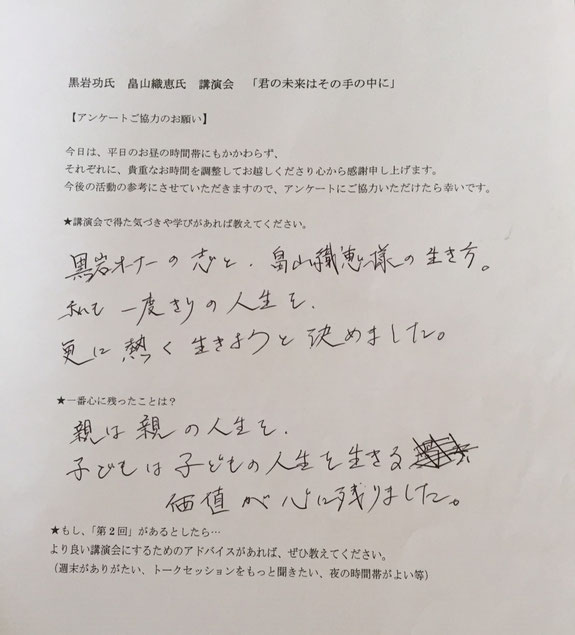 黒岩功氏　畠山織恵氏　講演会　「君の未来はその手の中に」
【アンケートご協力のお願い】
今日は、平日のお昼の時間帯にもかかわらず、
それぞれに、貴重なお時間を調整してお越しくださり心から感謝申し上げます。
今後の活動の参考にさせていただきますので、アンケートにご協力いただけたら幸いです。
★講演会で得た気づきや学びがあれば教えてください。
黒岩オーナーの志と、畠山織恵様の生き方。
私も一度きりの人生を、
更に熱く生きようと決めました。
★一番心に残ったことは？
親は親の人生を、
子どもは子どもの人生を生きる
価値が心に残りました。
★もし、「第２回」があるとしたら…
より良い講演会にするためのアドバイスがあれば、ぜひ教えてください。
（週末がありがたい、トークセッションをもっと聞きたい、夜の時間帯がよい等）